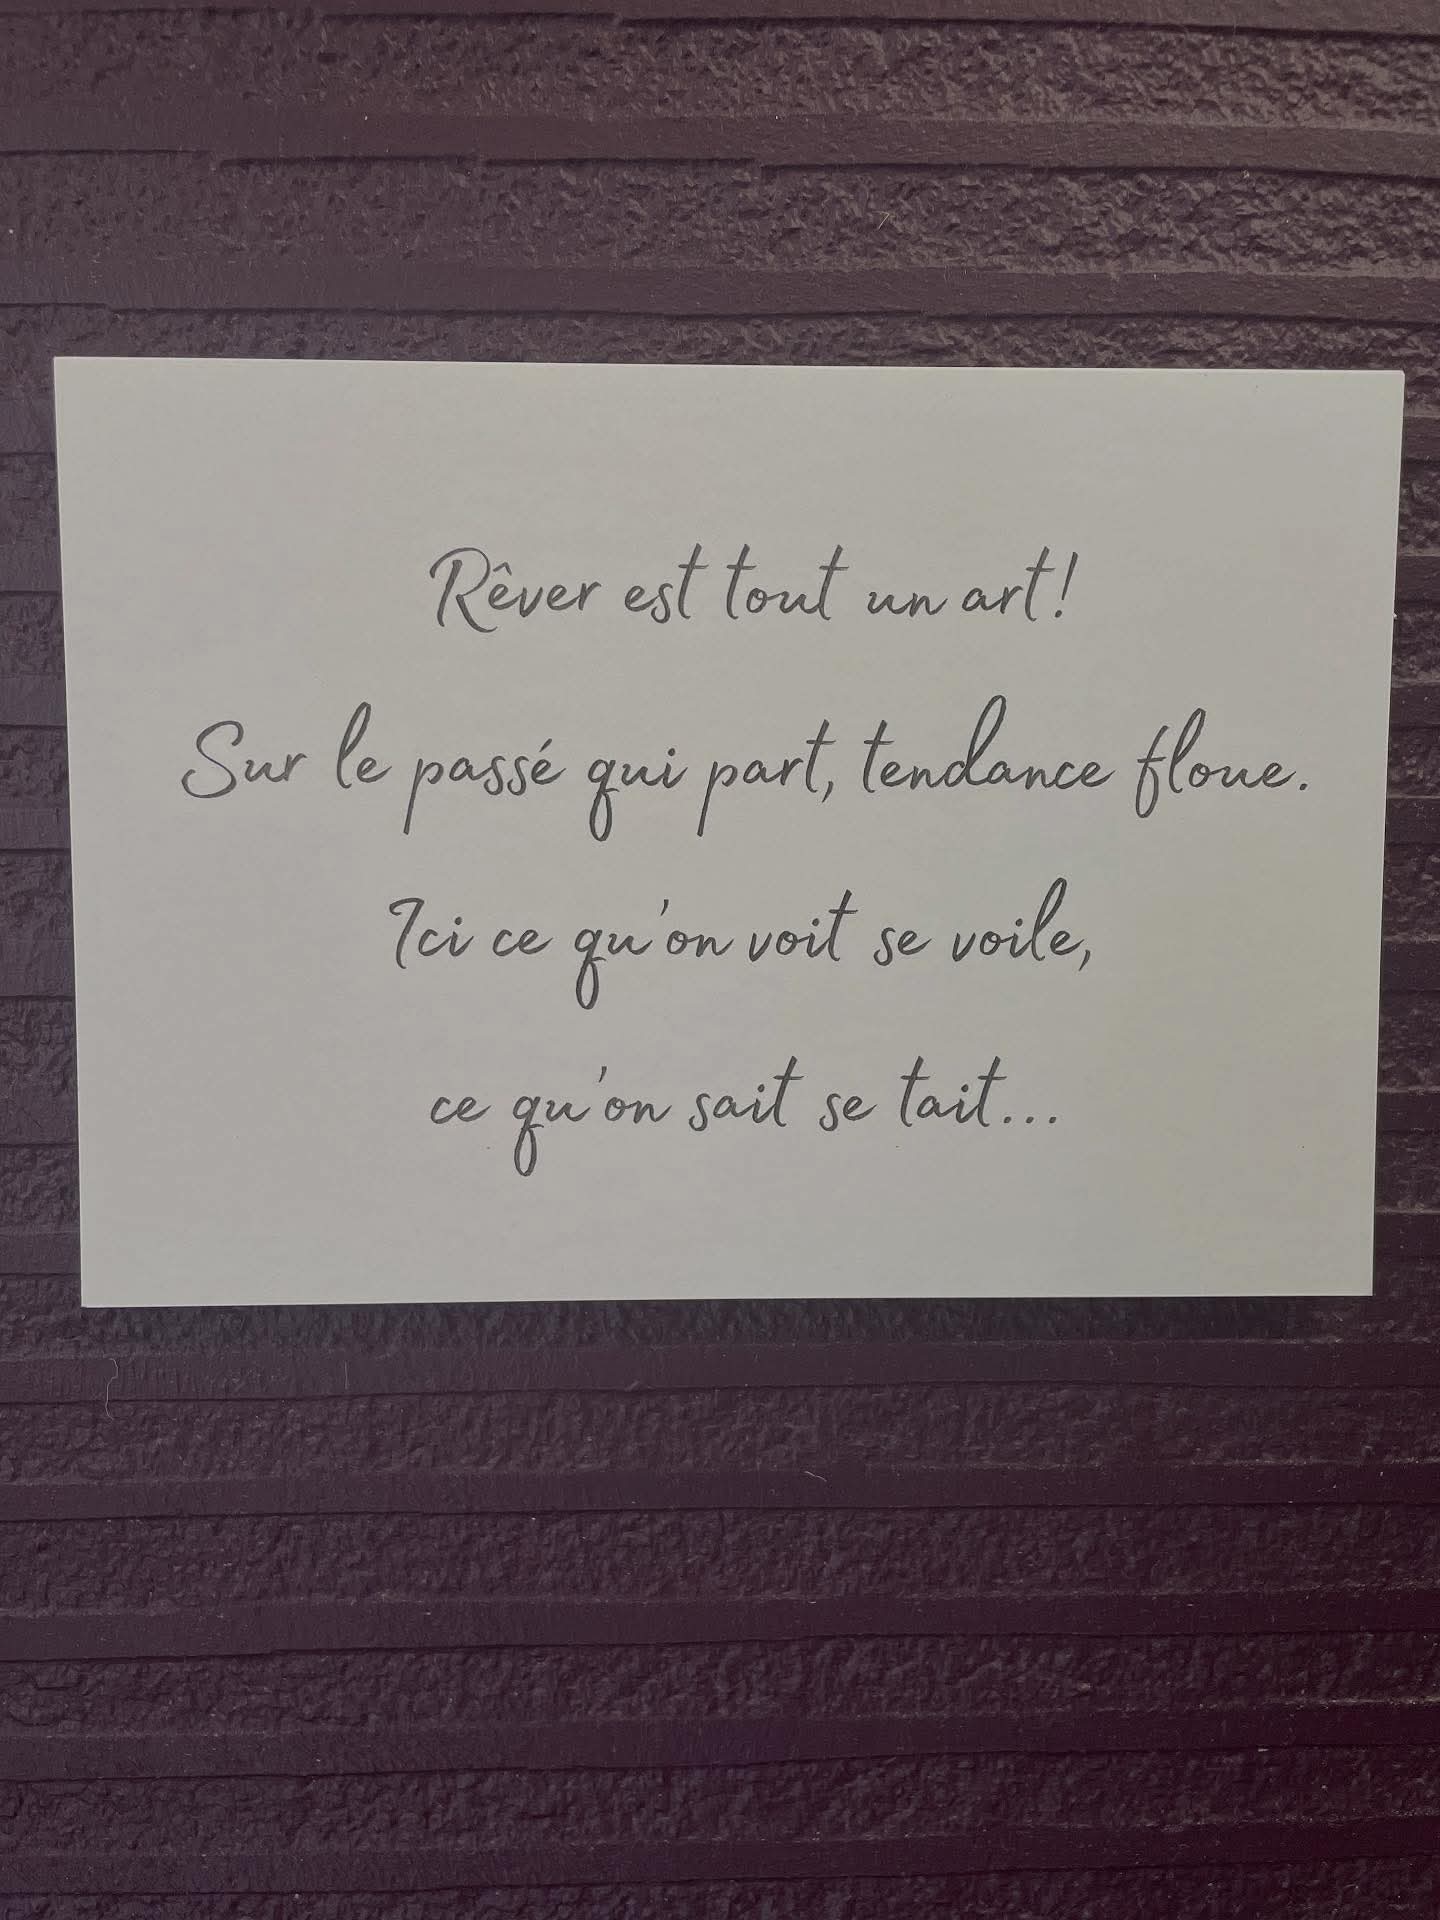 Rêver est tout un art!
Sur le passé qui part, tendance floue.
Ici ce qu'on voit se voile,
ce qu'on sait se tait...